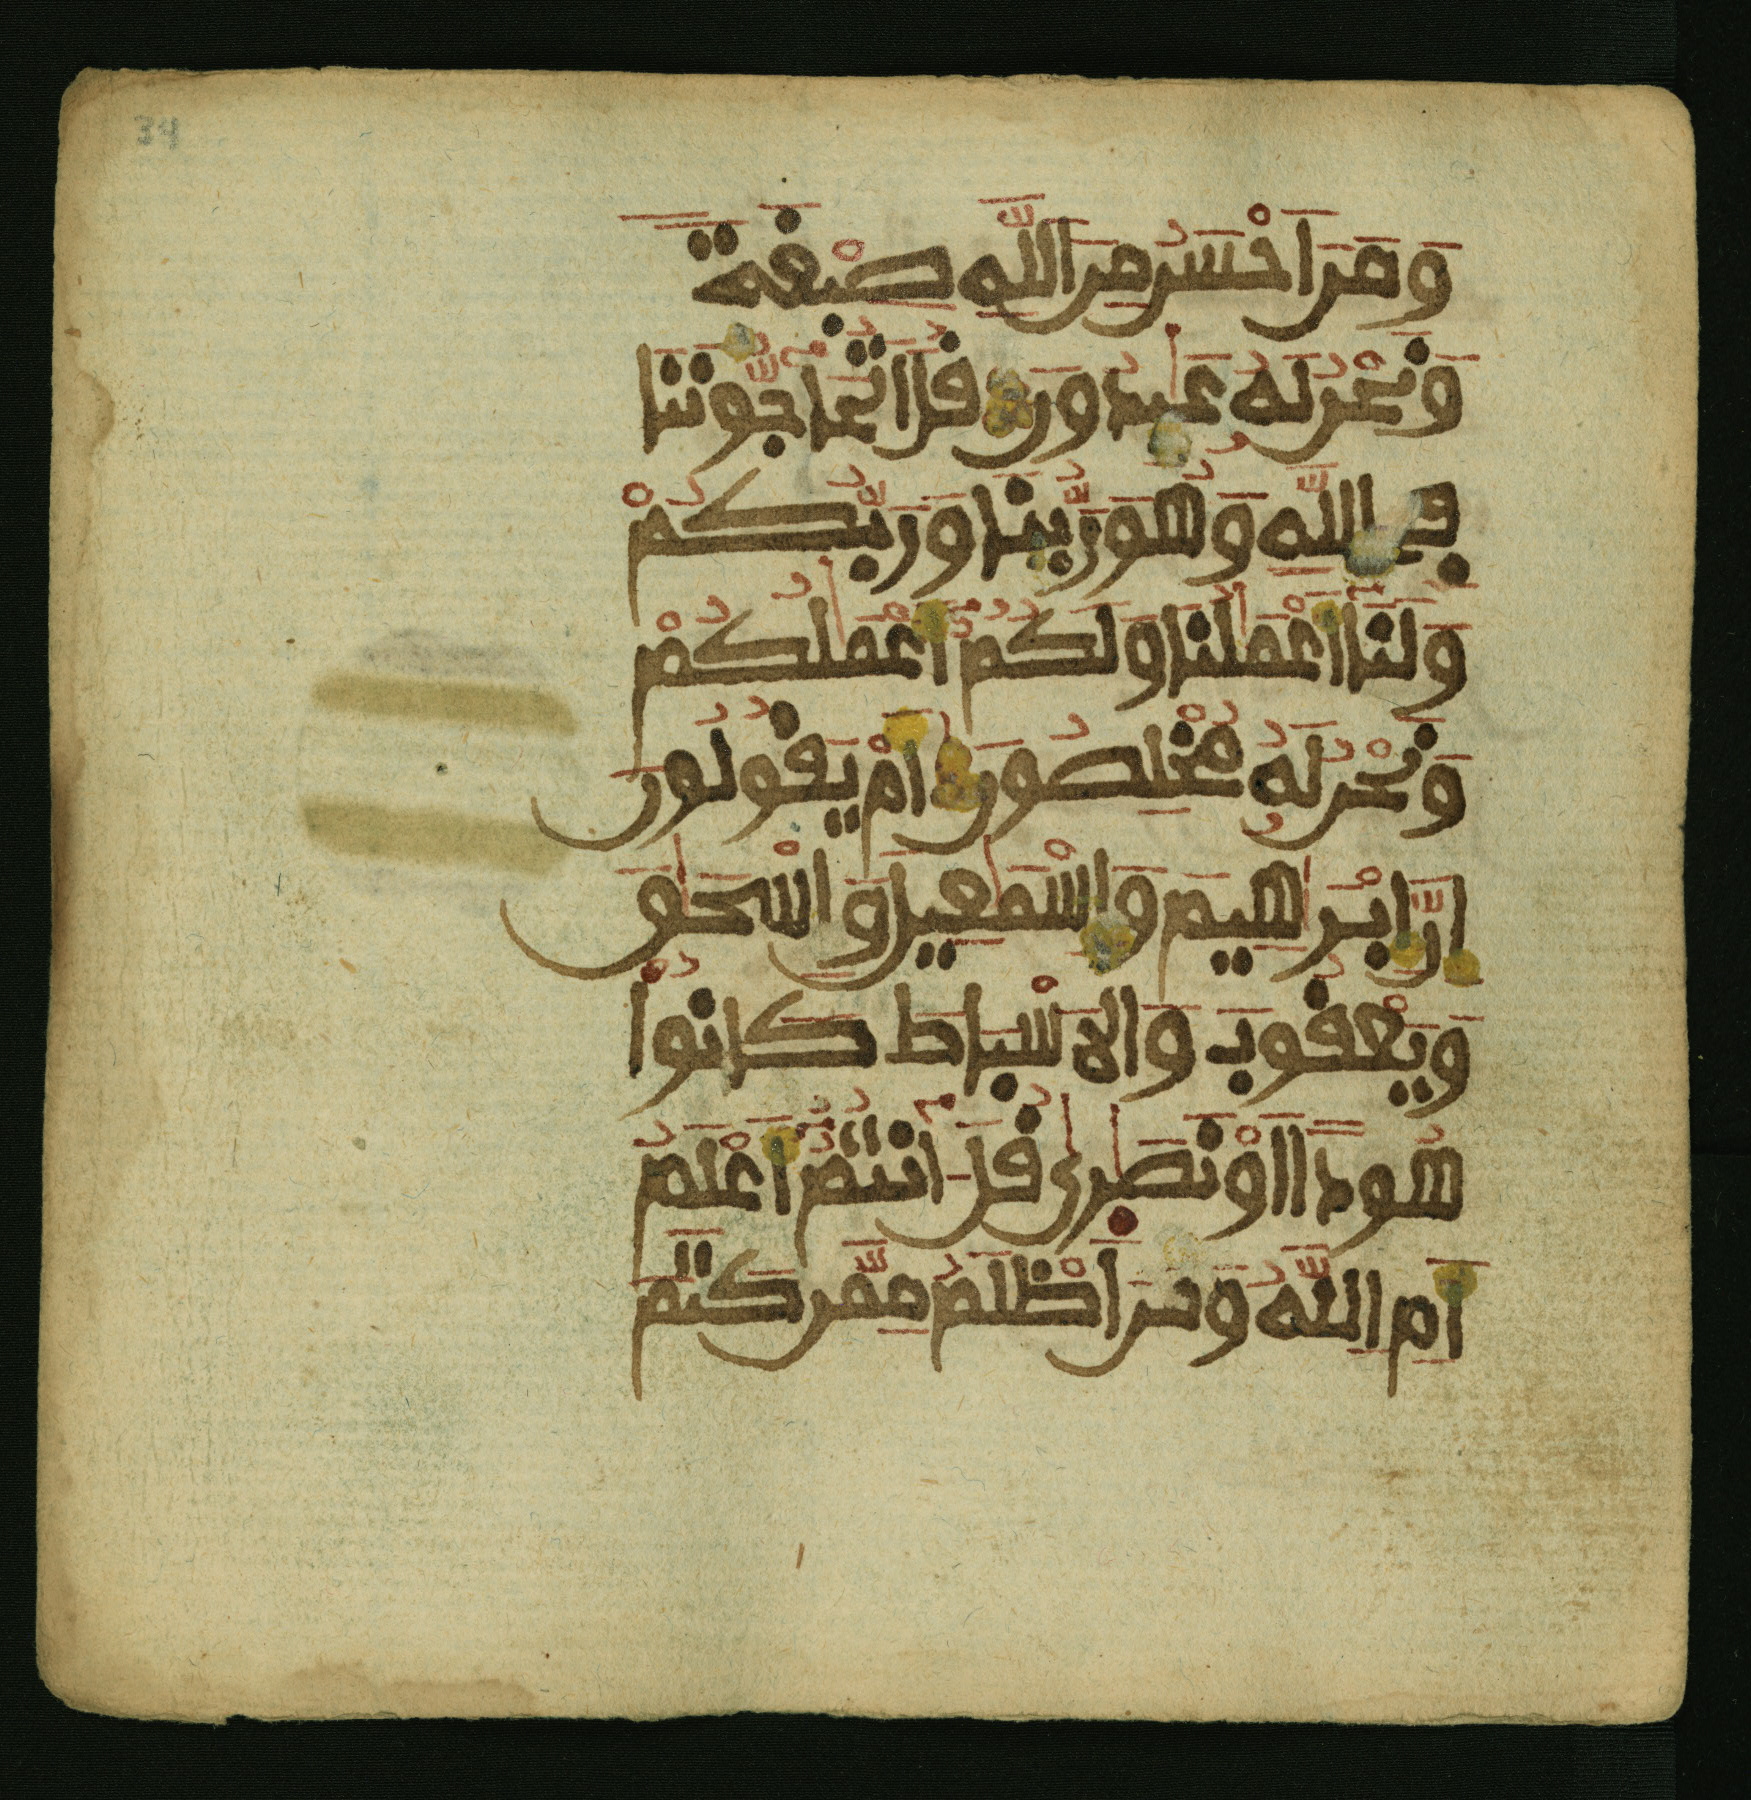 34
وَمَنَ اَحْسَنُ مِنَ اللَّهِ صِبْغَةً
وَنَحْنُ لَهُ عَٰبِدُونَ قُلَ اَتُحَاجُّونَنَا
فِي اللَّهِ وَهُوَ رَبُّنَا وَرَبُّكُمْ
وَلَنَا أَعْمَٰلُنَا وَلَكُمُ أَعْمَٰلُكُمْ
وَنَحْنُ لَهُ مُخْلِصُونَ أَمْ يَقُولُونَ
إِنَّ إِبْرَٰهِيمَ وَإِسْمَٰعِيلَ وَإِسْحَٰقَ
وَيَعْقُوبَ وَالَاسْبَاطَ كَانُوا
هُوداً اَوْ نَصَٰرَىٰ قُلَ اَنتُمُ أَعْلَمُ
أَمِ اللَّهُ وَمَنَ اَظْلَمُ مِمَّن كَتَمَ